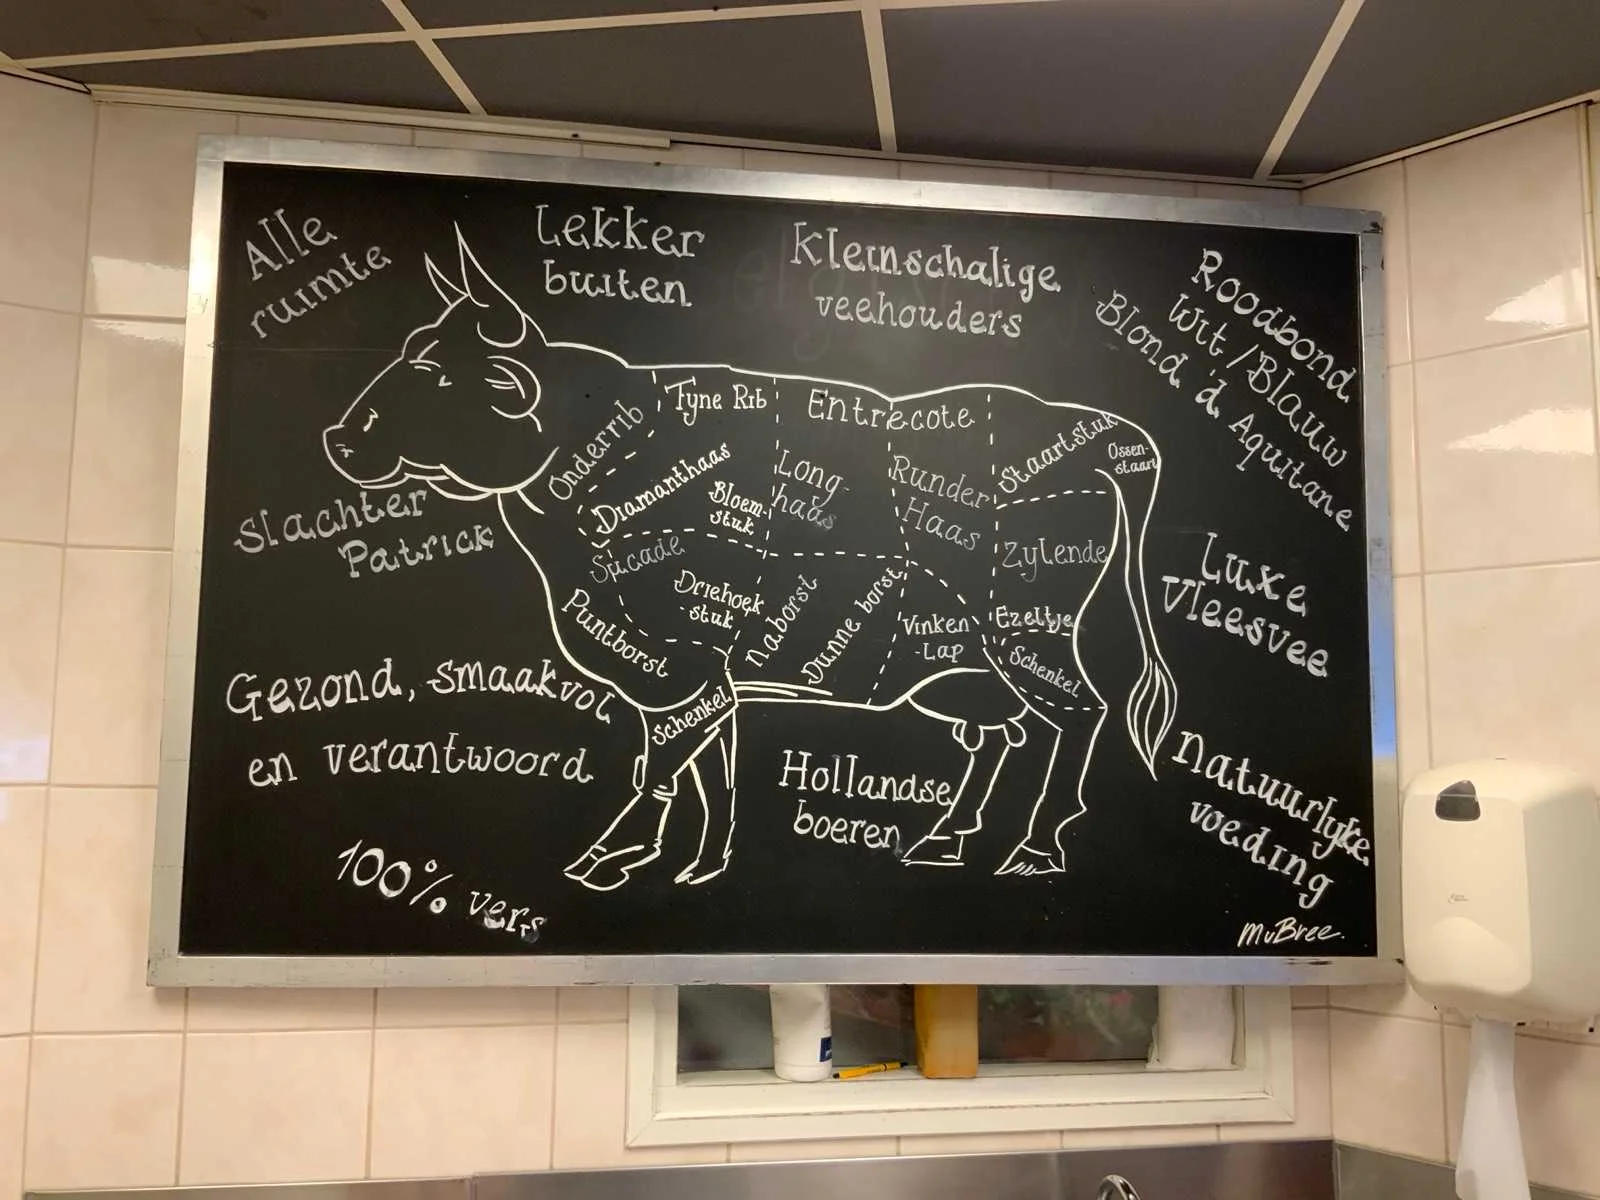 Alle
ruimte
Lekker
buiten
Kleinschalige
veehouders
Roodbond
Wit/Blauw
Blond d Aquitane
Onderrib
Fyne Rib
Entrecote
Staartstuk
Ossen-
staart
Diamanthaas
Bloem-
stuk
Long-
haas
Runder
Haas
Zylende
Slachter
Patrick
Sucade
Driehoek
-stuk
Puntborst
Naborst
Dunne borst
Vinken
-Lap
Ezeltje
Schenkel
Schenkel
Luxe
Vleesvee
Gezond, smaakvol
en verantwoord
Hollandse
boeren
Natuurlyke
voeding
100% vers
MvBree.